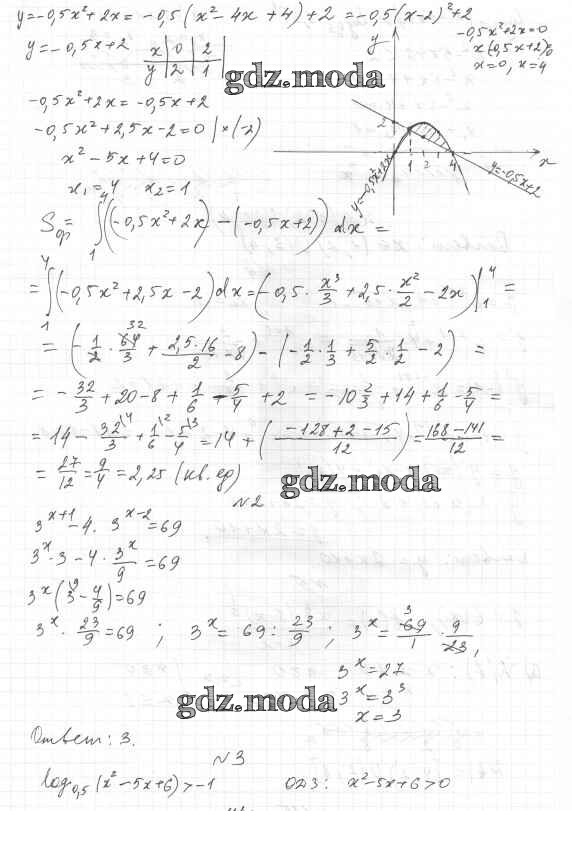 y=-0,5x²+2x= -0,5(x²-4x+4)+2 =-0,5(x-2)²+2
-0,5x²+2x=0
x(-0,5x+2)=0
x=0, x=4
y=-0,5x+2
x | 0 | 2
y | 2 | 1
gdz.moda
y
2
1 2 4
x
y=-0,5x²+2x
y=-0,5x+2
-0,5x²+2x= -0,5x+2
-0,5x²+2,5x-2=0 |×(-2)
x²-5x+4=0
x₁=4 x₂=1
Sφ= ∫₁⁴((-0,5x²+2x)-(-0,5x+2))dx=
=∫₁⁴(-0,5x²+2,5x-2)dx=(-0,5·x³/3+2,5·x²/2-2x)|₁⁴=
=(-1/2·64/3+2,5·16/2-8)-(-1/2·1/3+5/2·1/2-2)=
=-32/3+20-8+1/6-5/4+2=-10 2/3+14+1/6-5/4=
=14-32/3+1/6-5/4=14+((-128+2-15)/12)=(168-141)/12=
=27/12=9/4=2,25 (кв.ед)
gdz.moda
№2
3^(x+1)-4·3^(x-2)=69
3^x·3-4·3^x/9=69
3^x(3-4/9)=69
3^x·23/9=69; 3^x=69:23/9; 3^x=69/1·9/23,
3^x=27
3^x=3³
x=3
gdz.moda
Ответ: 3.
№3
log₀,₅(x²-5x+6)>-1 ОДЗ: x²-5x+6>0